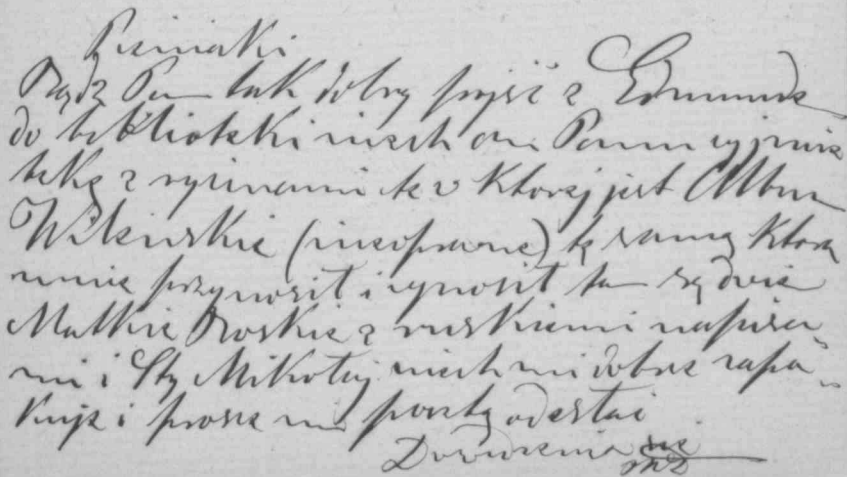 Bądź Pan tak dobry pójść z Edmundem
do biblioteki niech on Panu wyjmie
tekę z rycinami tę w której jest Album
Wileńskie (nieoprawne) tę samą którą
mnie przynosił i wynosił tam są dwie
Matki Boskie z ruskiemi napisa-
mi i Sty Mikołaj niech mi dobrze zapa-
kuje i proszę mi pocztą odesłać
Do widzenia się